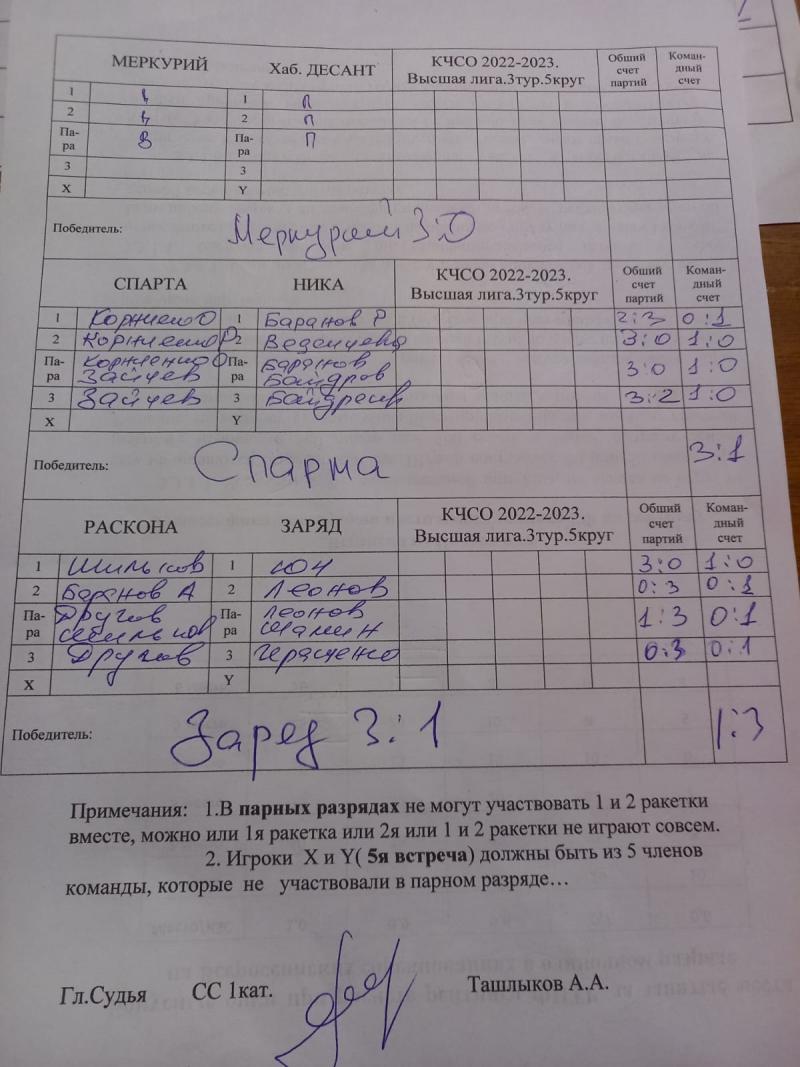 МЕРКУРИЙ Хаб. ДЕСАНТ КЧСО 2022-2023. Высшая лига.3тур.5круг Общий счет партий Коман-дный счет
1 В 1 П
2 В 2 П
Па-ра В Па-ра П
3 3
X Y
Победитель: Меркурий 3:0
СПАРТА НИКА КЧСО 2022-2023. Высшая лига.3тур.5круг Общий счет партий Коман-дный счет
1 1 Баранов Р 2:3 0:1
2 2 3:0 1:0
Па-ра Зайцев Па-ра Баранов 3:0 1:0
3 Зайцев 3 3:2 1:0
X Y
Победитель: Спарта 3:1
РАСКОНА ЗАРЯД КЧСО 2022-2023. Высшая лига.3тур.5круг Общий счет партий Коман-дный счет
1 1 Юн 3:0 1:0
2 Баранов А 2 Леонов 0:3 0:1
Па-ра Другов Па-ра Леонов 1:3 0:1
3 Другов 3 0:3 0:1
X Y
Победитель: Заряд 3:1 1:3
Примечания: 1.В парных разрядах не могут участвовать 1 и 2 ракетки
вместе, можно или 1я ракетка или 2я или 1 и 2 ракетки не играют совсем.
2. Игроки X и Y( 5я встреча) должны быть из 5 членов
команды, которые не участвовали в парном разряде…
Гл.Судья СС 1кат. Ташлыков А.А.